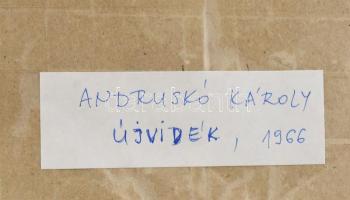 ANDRUSKÓ KÁROLY
ÚJVIDÉK, 1966